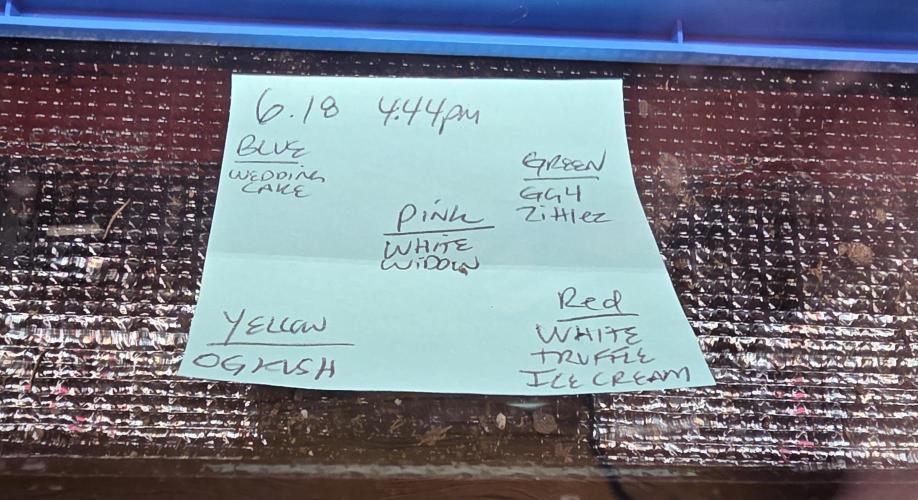 6.18 4:44pm
BLUE
WEDDING
CAKE
GREEN
GG4
Zittlez
Pink
WHITE
WIDOW
YELLOW
OG KUSH
Red
WHITE
TRUFFLE
ICE CREAM